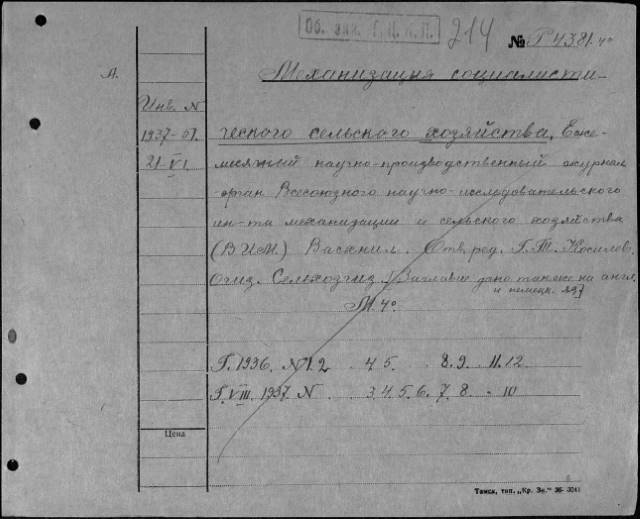 Об. зак. Г.Ц.К.П.
214
№ Г 4381. 4°
А.
Механизация социалисти-
Инв. N
1937-61.
21-VI.
ческого сельского хозяйства. Еже-
месячный научно-производственный журнал
орган Всесоюзного научно-исследовательского
ин-та механизации и сельского хозяйства
(ВИСМ.) Васхнил. Отв. ред. Г. Т. Косилов.
Огиз. Сельхозгиз. [Заглавие дано также на англ.
и немецк. яз.]
М. 4°
Г. 1936. N 1. 2 4 5. 8. 9. 11. 12
Г. VIII. 1937. N 3. 4. 5. 6. 7. 8 - 10
Цена
Томск, тип. „Кр. Зн.“ 36-